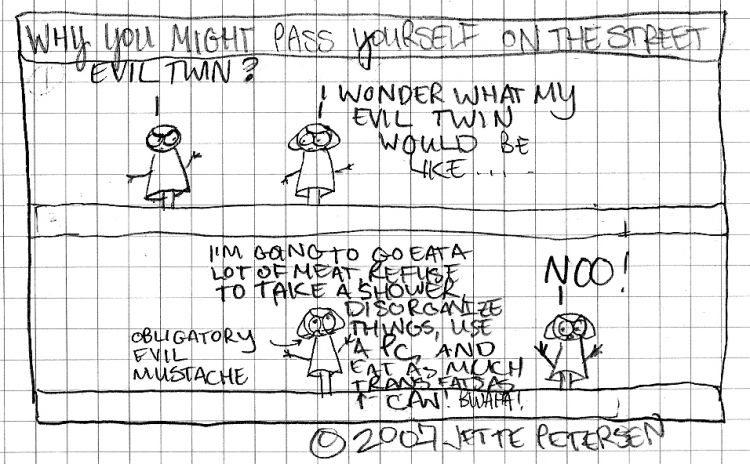 WHY YOU MIGHT PASS YOURSELF ON THE STREET
EVIL TWIN?
I WONDER WHAT MY
EVIL TWIN
WOULD BE
LIKE....
I'M GOING TO GO EAT A
LOT OF MEAT, REFUSE
TO TAKE A SHOWER,
DISORGANIZE
THINGS, USE
A PC, AND
EAT AS MUCH
TRANS FAT AS
I CAN! BWAHA!
NOO!
OBLIGATORY
EVIL
MUSTACHE
© 2007 JETTE PETERSEN